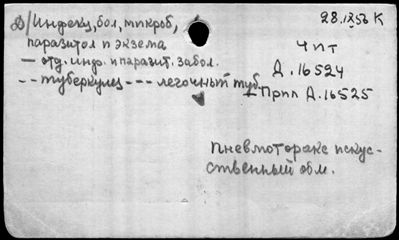 Д/ Инфекц, бол, микроб,
паразитол и экзема
— отд. инф. и паразит. забол.
- - туберкулез - - - легочный туб.
28.IX.56 К
Чит
Д. 16524
+ Прпп Д. 16525
Пневмоторакс искус-
ственный обм.